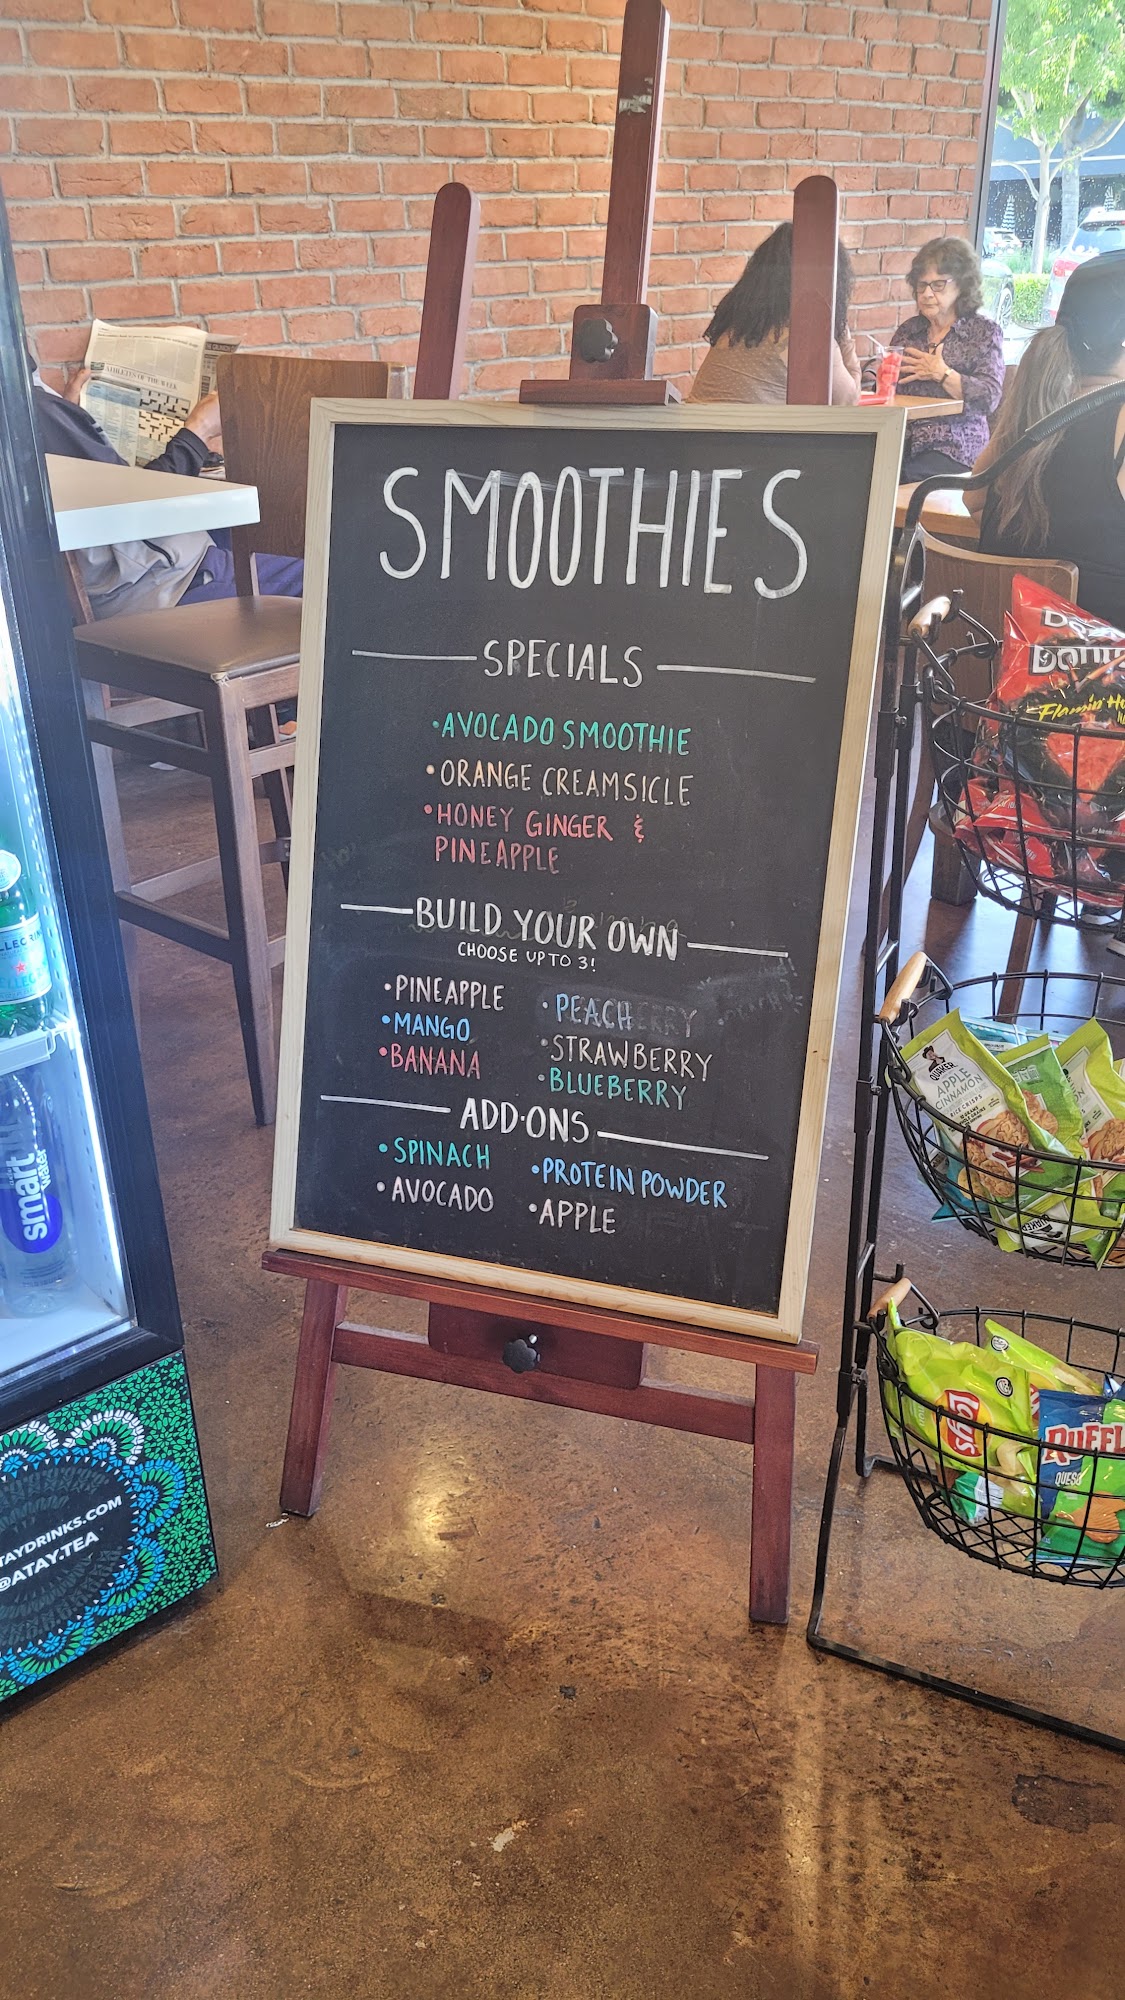 SMOOTHIES
SPECIALS
•AVOCADO SMOOTHIE
•ORANGE CREAMSICLE
•HONEY GINGER &
PINEAPPLE
BUILD YOUR OWN
CHOOSE UP TO 3!
•PINEAPPLE
•MANGO
•BANANA
•PEACH
•STRAWBERRY
•BLUEBERRY
ADD-ONS
•SPINACH
•AVOCADO
•PROTEIN POWDER
•APPLE
ATHLETES OF THE WEEK
smart
water
TAYDRINKS.COM
@ATAY.TEA
Flamin' H
QUAKER
APPLE
CINNAMON
RICE CRISPS
QUAKER
Lay's
RUFFL
QUESO